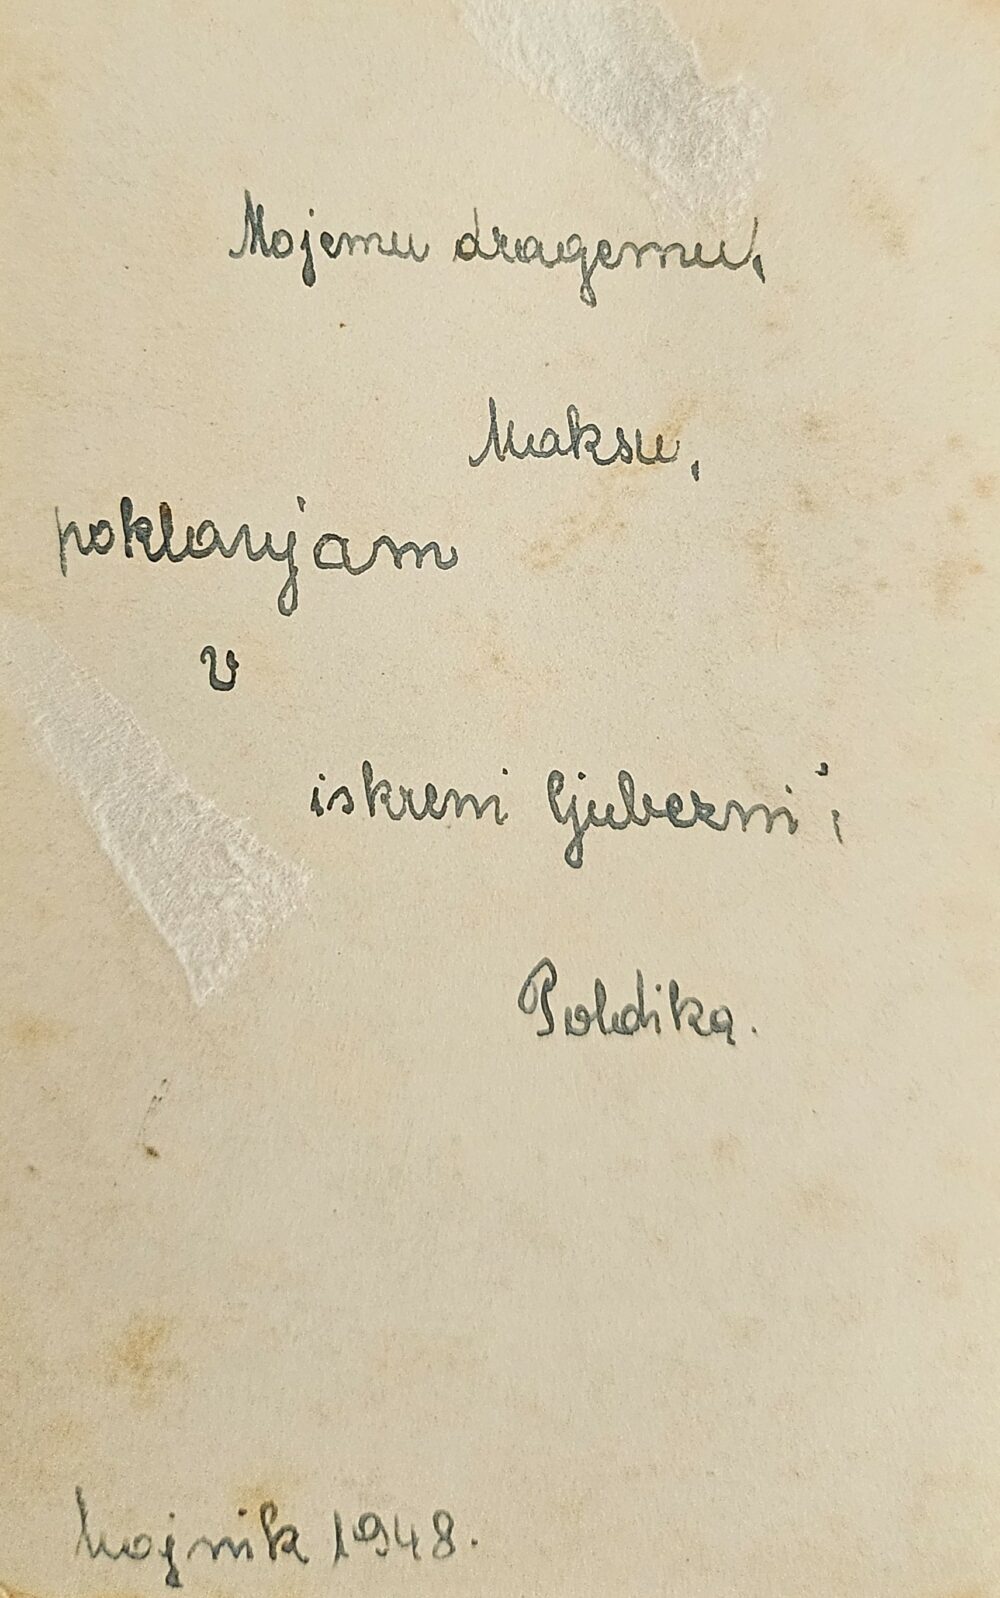 Mojemu dragemu,
Maksu,
poklanjam
v
iskreni ljubezni,
Poldika.
Vojnik 1948.